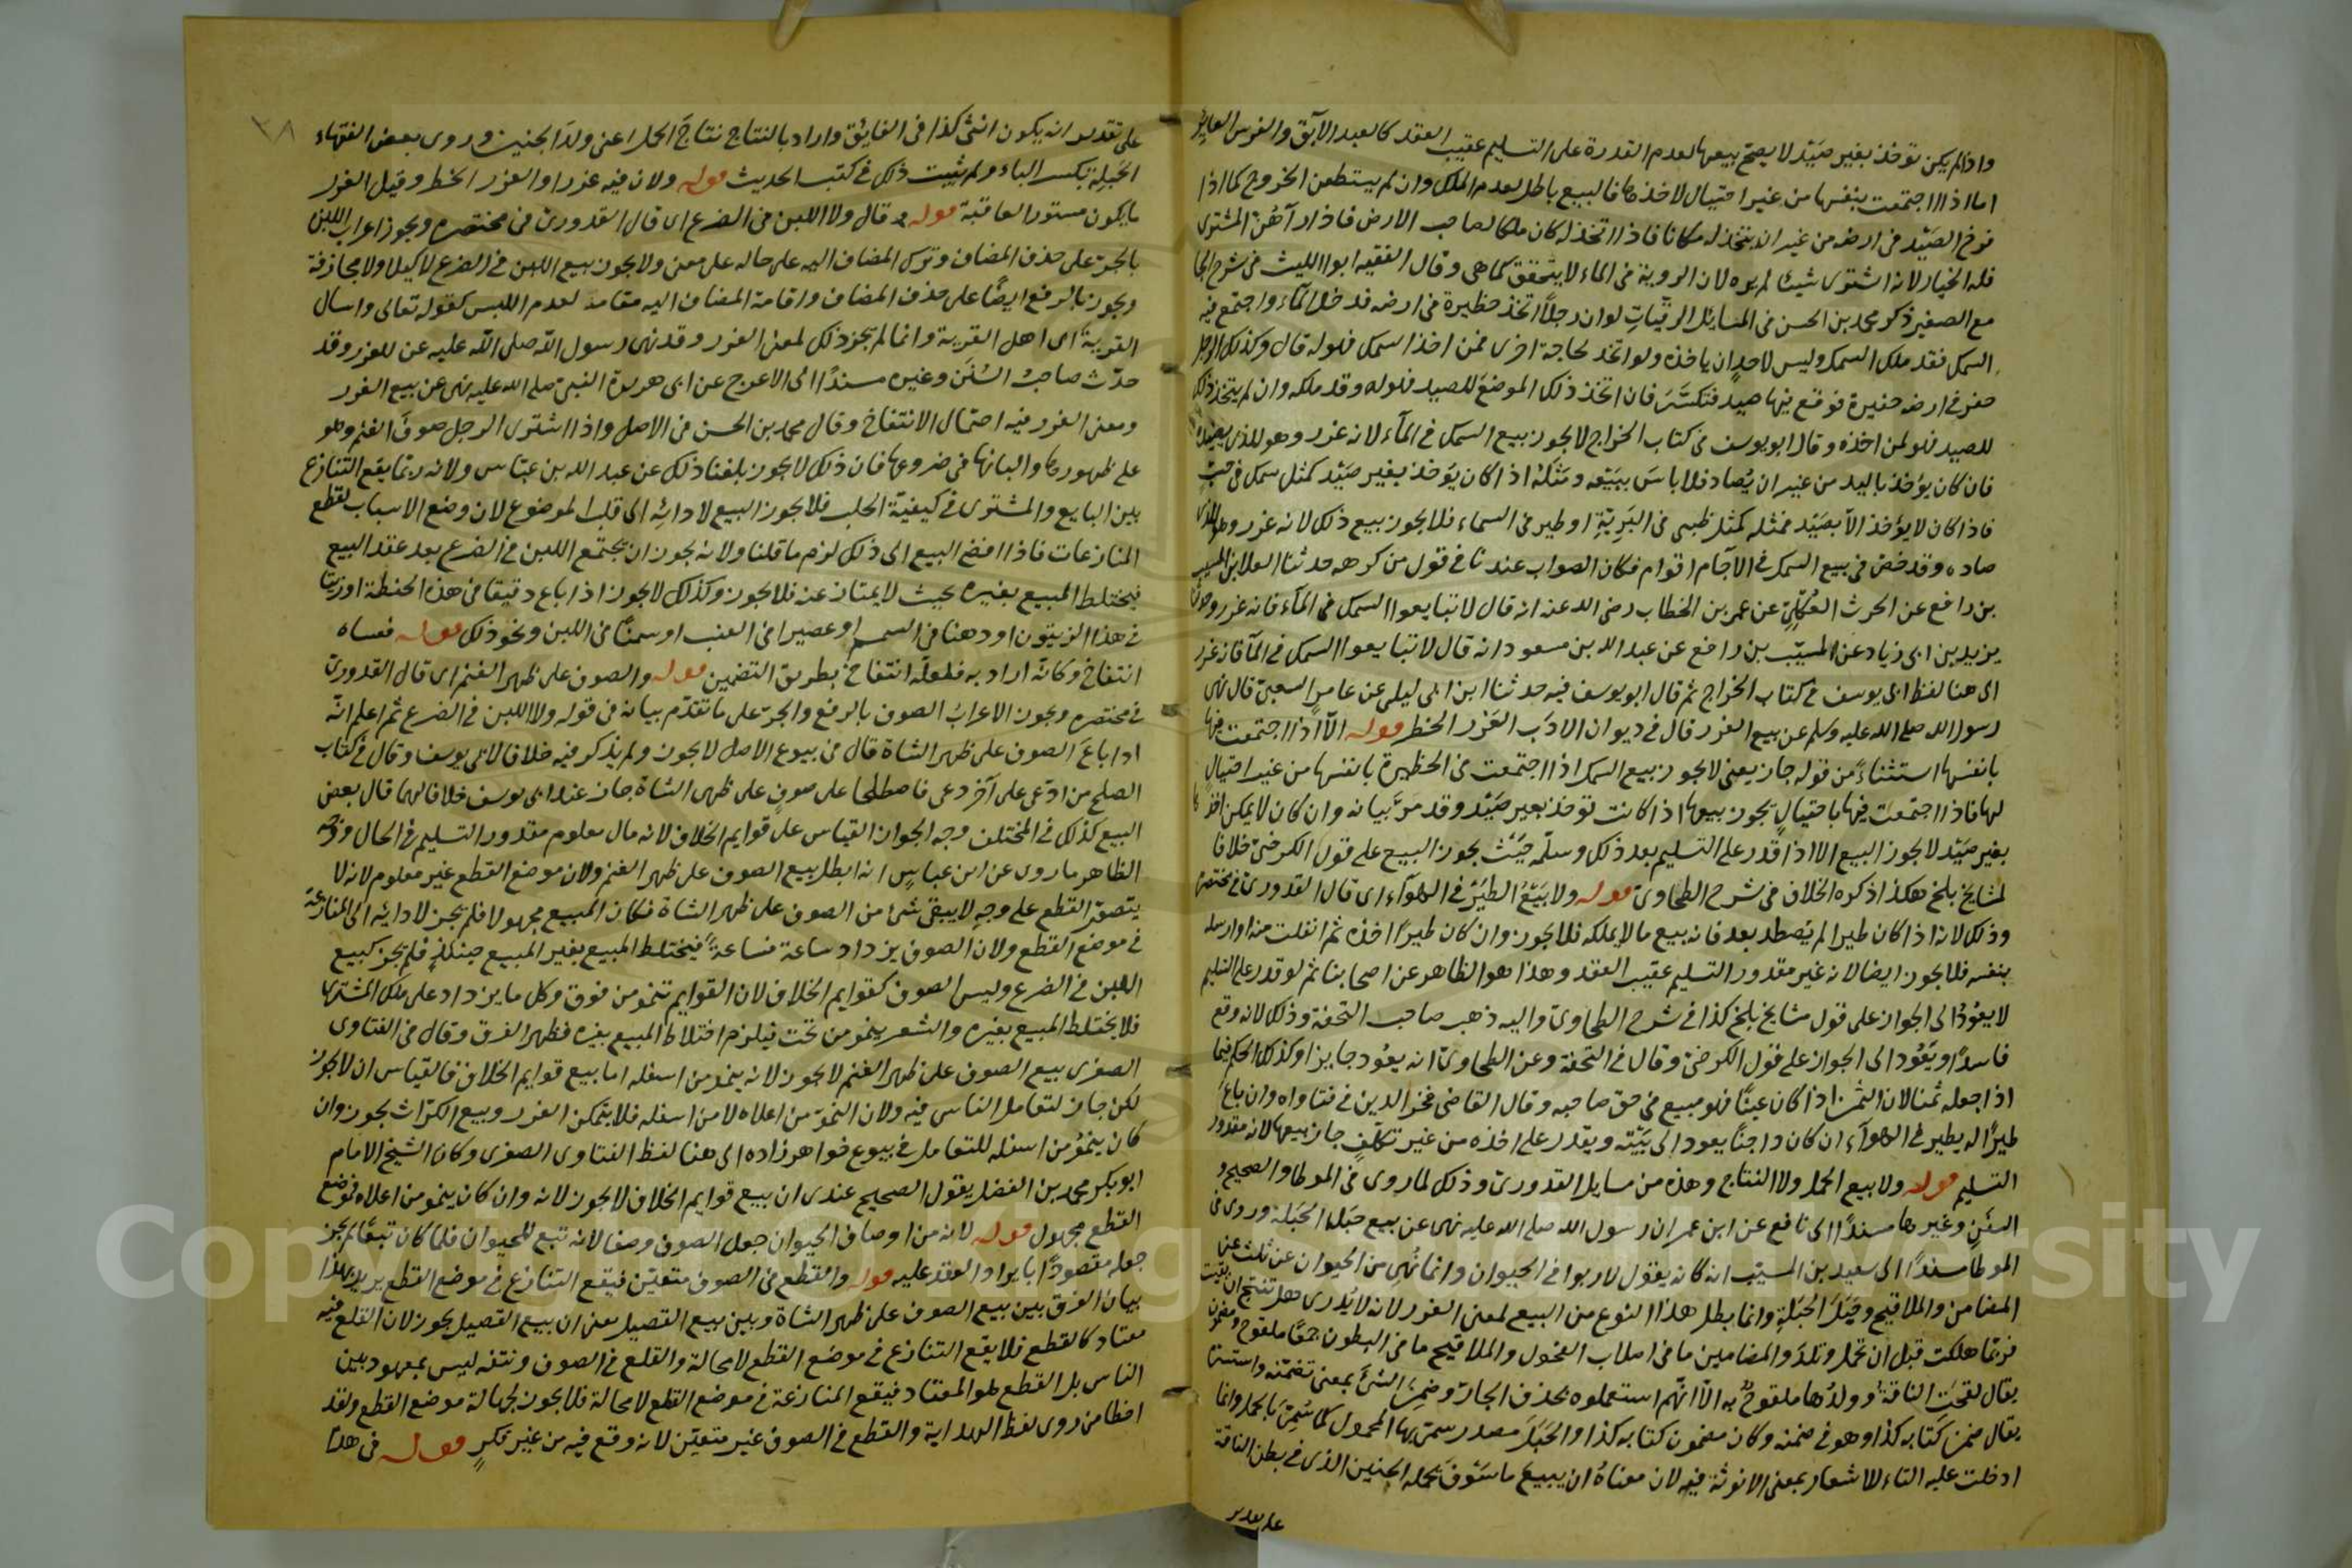 واذا لم يكن توخذ بغير صَيْد لا يصح بيعها لعدم القدرة على التسليم عقيب العقد كالعبد الآبق والفرس العاير
اما اذا اجتمعت بنفسها من غير احتيال لاخذها فالبيع باطل لعدم الملك وان لم يستطعن الخروج كما اذا
فرخ الصَيْد في ارضه من غير ان يتخذ له مكانا فاذا اتخذ له كان ملكا لصاحب الارض فاذا رآهن المشترى
فله الخيار لانه اشترى شيئا لم يره لان الروية في الماء لا يتحقق كما هى وقال الفقيه ابوا الليث في شرح الجا
مع الصغير ذكر محمد بن الحسن في المسائل الرقيّات لو ان رجلاً اتخذ حظيرة في ارضه فدخل الماء واجتمع فيه
السمك فقد ملك السمك وليس لاحدٍ ان ياخذه ولو اتخذ لحاجة اخرى فمن اخذ السمك فهو له قال وكذلك الرجل
حفر في ارضه حفيرة فوقع فيها صيد فتكسَّر فان اتخذ ذلك الموضع للصيد فهو له وقد ملكه وان لم يتخذ ذلك
للصيد فهو لمن اخذه وقال ابو يوسف في كتاب الخراج لا يجوز بيع السمك في الماء لانه غرر وهو للذى يصيده
فان كان يؤخذ باليد من غير ان يُصاد فلا باسَ ببَيْعه ومَثَله اذا كان يؤخذ بغير صَيْد كمثل سمك في حبّ
فاذا كان لا يؤخذ الا بصَيْد فمثله كمثل ظبى في البَرِيّةِ او طير في السماء فلا يجوز بيع ذلك لانه غرر وهو للذى
صاده وقد رخص في بيع السمك في الآجام اقوام فكان الصواب عندنا في قول من كرهه حدثنا العلا بن المسيب
بن رافع عن الحرث العُكْلِيّ عن عمر بن الخطاب رضى الله عنه انه قال لا تبايعوا السمك في الماء فانه غرر وحدثنا
يزيد بن ابى زياد عن المسيّب بن رافع عن عبد الله بن مسعود انه قال لا تبايعوا السمك في الماء فانه غرر
الى هنا لفظ ابى يوسف في كتاب الخراج ثم قال ابو يوسف فيه حدثنا ابن ابى ليلى عن عامرٍ الشعبى قال نهى
رسول الله صلى الله عليه وسلم عن بيع الغرر قال في ديوان الادَب الغَرَر الخطر قوله الّا اذا اجتمعت فيها
بانفسها استثناءٌ من قوله جاز يعنى لا يجوز بيع السمك اذا اجتمعت في الحظيرة بانفسها من غير احتيالٍ
لها فاذا اجتمعَت فيها باحتيالٍ يجوز بيعها اذا كانت توخذ بغير صَيْد وقد مَرَّ بيانه وان كان لا يمكن اخذها
بغير صَيْد لا يجوز البيع الا اذا قدر على التسليم بعد ذلك وسلّمه حَيْثُ يجوز البيع على قول الكرخىّ خلافا
لمشايخ بلخ هكذا ذكره الخلاف في شرح الطحاوى قوله ولا بَيْعُ الطَيْر في الهوآء اى قال القدورى في مختصره
وذلك لانه اذا كان طيرا لم يُصْطد بعد فانه بيع ما لا يملكه فلا يجوز وان كان طيرًا اخذه ثم انفلت منه او ارسله
بنفسه فلا يجوز ايضا لانه غير مقدور التسليم عقيب العقد وهذا هو الظاهر عن اصحابنا ثم لو قدر على التسليم
لا يعُودُ الى الجواز على قول مشايخ بلخ كذا في شرح الطحاوى واليه ذهب صاحب التحفة وذلك لانه وقع
فاسدًا ويَعُود الى الجواز على قول الكرخىّ وقال في التحفة وعن الطحاوىّ انه يعُود جايزا وكذلك الحكم فيما
اذا جعله ثمنا لان الثمن اذا كان عينًا فهو مبيع في حق صاحبه وقال القاضى فخر الدين في فتاواه وان باعَ
طيرًا له يطير في الهوآء ان كان داجنًا يعود الى بَيْته ويقدر على اخذه من غير تكلفٍ جاز بيعها لانه مقدور
التسليم قوله ولا بيع الحمل ولا النتاج وهذه من مسايل القدورى وذلك لما روى في الموطا والصحيح و
السنَن وغيرها مسندًا الى نافع عن ابن عمر ان رسول الله صلى الله عليه نهى عن بيع حبَل الحبَلة وروى في
الموطا مسندًا الى سعيد بن المسيّب انه كان يقول لا ربوا في الحيوان وانما نُهى من الحيوان عن ثلث عن
المضامين والملاقيح وحَبَلَ الحَبَلةِ وانما بطل هذا النوع من البيع لمعنى الغرر لانه لا يُدرى هل تنتج ان بقيت
فربّما هلكت قبل ان تحمل وتلدَ والمضامين ما في اصلاب الفحول والملاقيح ما في البطون جمعًا ملقوح ومضمون
يقال لقحَت الناقة وولدُها ملقوحٌ به الّا انّهم استعملوه بحذف الجارّ وضمِنَ الشئَ بمعنى تضمّنه واستسرّه
يقال ضمن كتابه كذا وهو في ضمنه وكان مضمون كتابه كذا والحَبَلَ مصدر سمى بها المحمول كما سُمّى بالحمل وانما
ادخلت عليه التاء للاشعار بمعنى الانوثة فيه لان معناهُ ان يبيعَ ما سَوْفَ تحمله الجنين الذى في بطن الناقة
على تقدير
على تقدير ان يكون انثى كذا في الفايق واراد بالنتاج نتاجَ الحمل اعنى ولدَ الجنين وروى بعض الفقهاء
الحَبِلة بكسر الباء ولم يثبت ذلك في كتب الحديث قوله ولان فيه غررا والغرر الخطر وقيل الغرر
ما يكون مستور العاقبة قوله وقال ولا اللبن في الضرع اى قال القدورى في مختصره ويجوز اعراب اللبن
بالجرّ على حذف المضاف وترك المضاف اليه على حاله على معنى ولا يجوز بيع اللبن في الضرع لا كيلا ولا مجازفة
ويجوز بالرفع ايضًا على حذف المضاف واقامة المضاف اليه مقامه لعدم اللبس كقوله تعالى واسال
القرية اى اهل القرية وانما لم يجز ذلك لمعنى الغرر وقد نهى رسول الله صلى الله عليه عن الغرر وقد
حدّث صاحبُ السُنَن وغيره مسندًا الى الاعرج عن ابى هريرة النبى صلى الله عليه نهى عن بيع الغرر
ومعنى الغرر فيه احتمال الانتفاخ وقال محمد بن الحسن في الاصل واذا اشترى الرجل صوفَ الغنم وهو
على ظهورها والبانها في ضروعها فان ذلك لا يجوز بلغنا ذلك عن عبد الله بن عبّاس ولانه ربّما يقع التنازع
بين البايع والمشترى في كيفيّة الحلب فلا يجوز البيع لادائه الى قلب الموضوع لان وضع الاسباب لقطع
المنازعات فاذا افضى البيع الى ذلك لزم ما قلنا ولانه يجوز ان يجتمع اللبن في الضرع بعد عقد البيع
فيختلط المبيع بغيره بحيث لا يمتاز عنه فلا يجوز وكذلك لا يجوز اذا باع دقيقا في هذه الحنطة او زيتا
في هذا الزيتون او دهنا في السمسم او عصيرا في العنب او سمنًا في اللبن ونحو ذلك قوله فعساه
انتفاخ وكانّه اراد به فلعلّه انتفاخ بطريق التضمين قوله والصوف على ظهر الغنم اى قال القدورىّ
في مختصره ويجوز الاعرابُ الصوف بالرفع والجرّ على ما تقدّم بيانه في قوله ولا اللبن في الضرع ثم اعلم انّه
اذا باعَ الصوف على ظهر الشاة قال في بيوع الاصل لا يجوز ولم يذكر فيه خلافا لابى يوسف وقال في كتاب
الصلح من ادّعى على آخر دعوى فاصطلحا على صوفٍ على ظهر الشاة جاز عند ابى يوسف خلافا لهما قال بعض
البيع كذلك في المختلف وجه الجواز القياس على قوايم الخلاف لانه مال معلوم مقدور التسليم في الحال ووجه
الظاهر ما روى عن ابن عباسٍ انه ابطل بيع الصوف على ظهر الغنم ولان موضع القطع غير معلوم لانه لا
يتصوّر القطع على وجهٍ لا يبقى شئ من الصوف على ظهر الشاة فكان المبيع مجهولا فلم يجز لادائه الى المنازعة
في موضع القطع ولان الصوف يزداد ساعة فساعةً فيختلط المبيع بغير المبيع حينئذٍ فلم يجز كبيع
اللبن في الضرع وليس الصوف كقوايم الخلاف لان القوايم تنمو من فوق وكل ما يزداد على ملك المشترى
فلا يختلط المبيع بغيره والشعر ينمو من تحت فيلزم اختلاط المبيع بغيره فظهر الفرق وقال في الفتاوى
الصغرى بيع الصوف على ظهر الغنم لا يجوز لانه ينمو من اسفله اما بيع قوايم الخلاف فالقياس ان لا يجوز
لكن جاز لتعامل الناس فيه ولان النموّ من اعلاه لا من اسفله فلا يتمكن الغرر وبيع الكرّاث يجوز وان
كان ينمُوْ من اسفله للتعامل في بيوع خواهر زاده الى هنا لفظ الفتاوى الصغرى وكان الشيخ الامام
ابو بكر محمد بن الفضل يقول الصحيح عندى ان بيع قوايم الخلاف لا يجوز لانه وان كان ينمو من اعلاه فموضع
القطع مجهول قوله لانه من اوصاف الحيوان جعل الصوف وصفا لانه تبع للحيوان فلما كان تبعًا لم يجز
جعله مقصودًا بايراد العقد عليه قوله والقطع في الصوف متعيّن فيقع التنازع في موضع القطع يريد بهذا
بيان الفرق بين بيع الصوف على ظهر الشاة وبين بيع القصيل يعنى ان بيع القصيل يجوز لان القلع فيه
معتاد كالقطع فلا يقع التنازع في موضع القطع لا محالة والقلع في الصوف ونتفه ليس بمعهود بين
الناس بل القطع هو المعتاد فيقع المنازعة في موضع القطع لا محالة فلا يجوز لجهالة موضع القطع ولقد
اخطا من روى لفظ الهداية والقطع في الصوف غير متعيّن لانه وقع فيه من غير فكرٍ قوله في هذا
Copyright © King Saud University